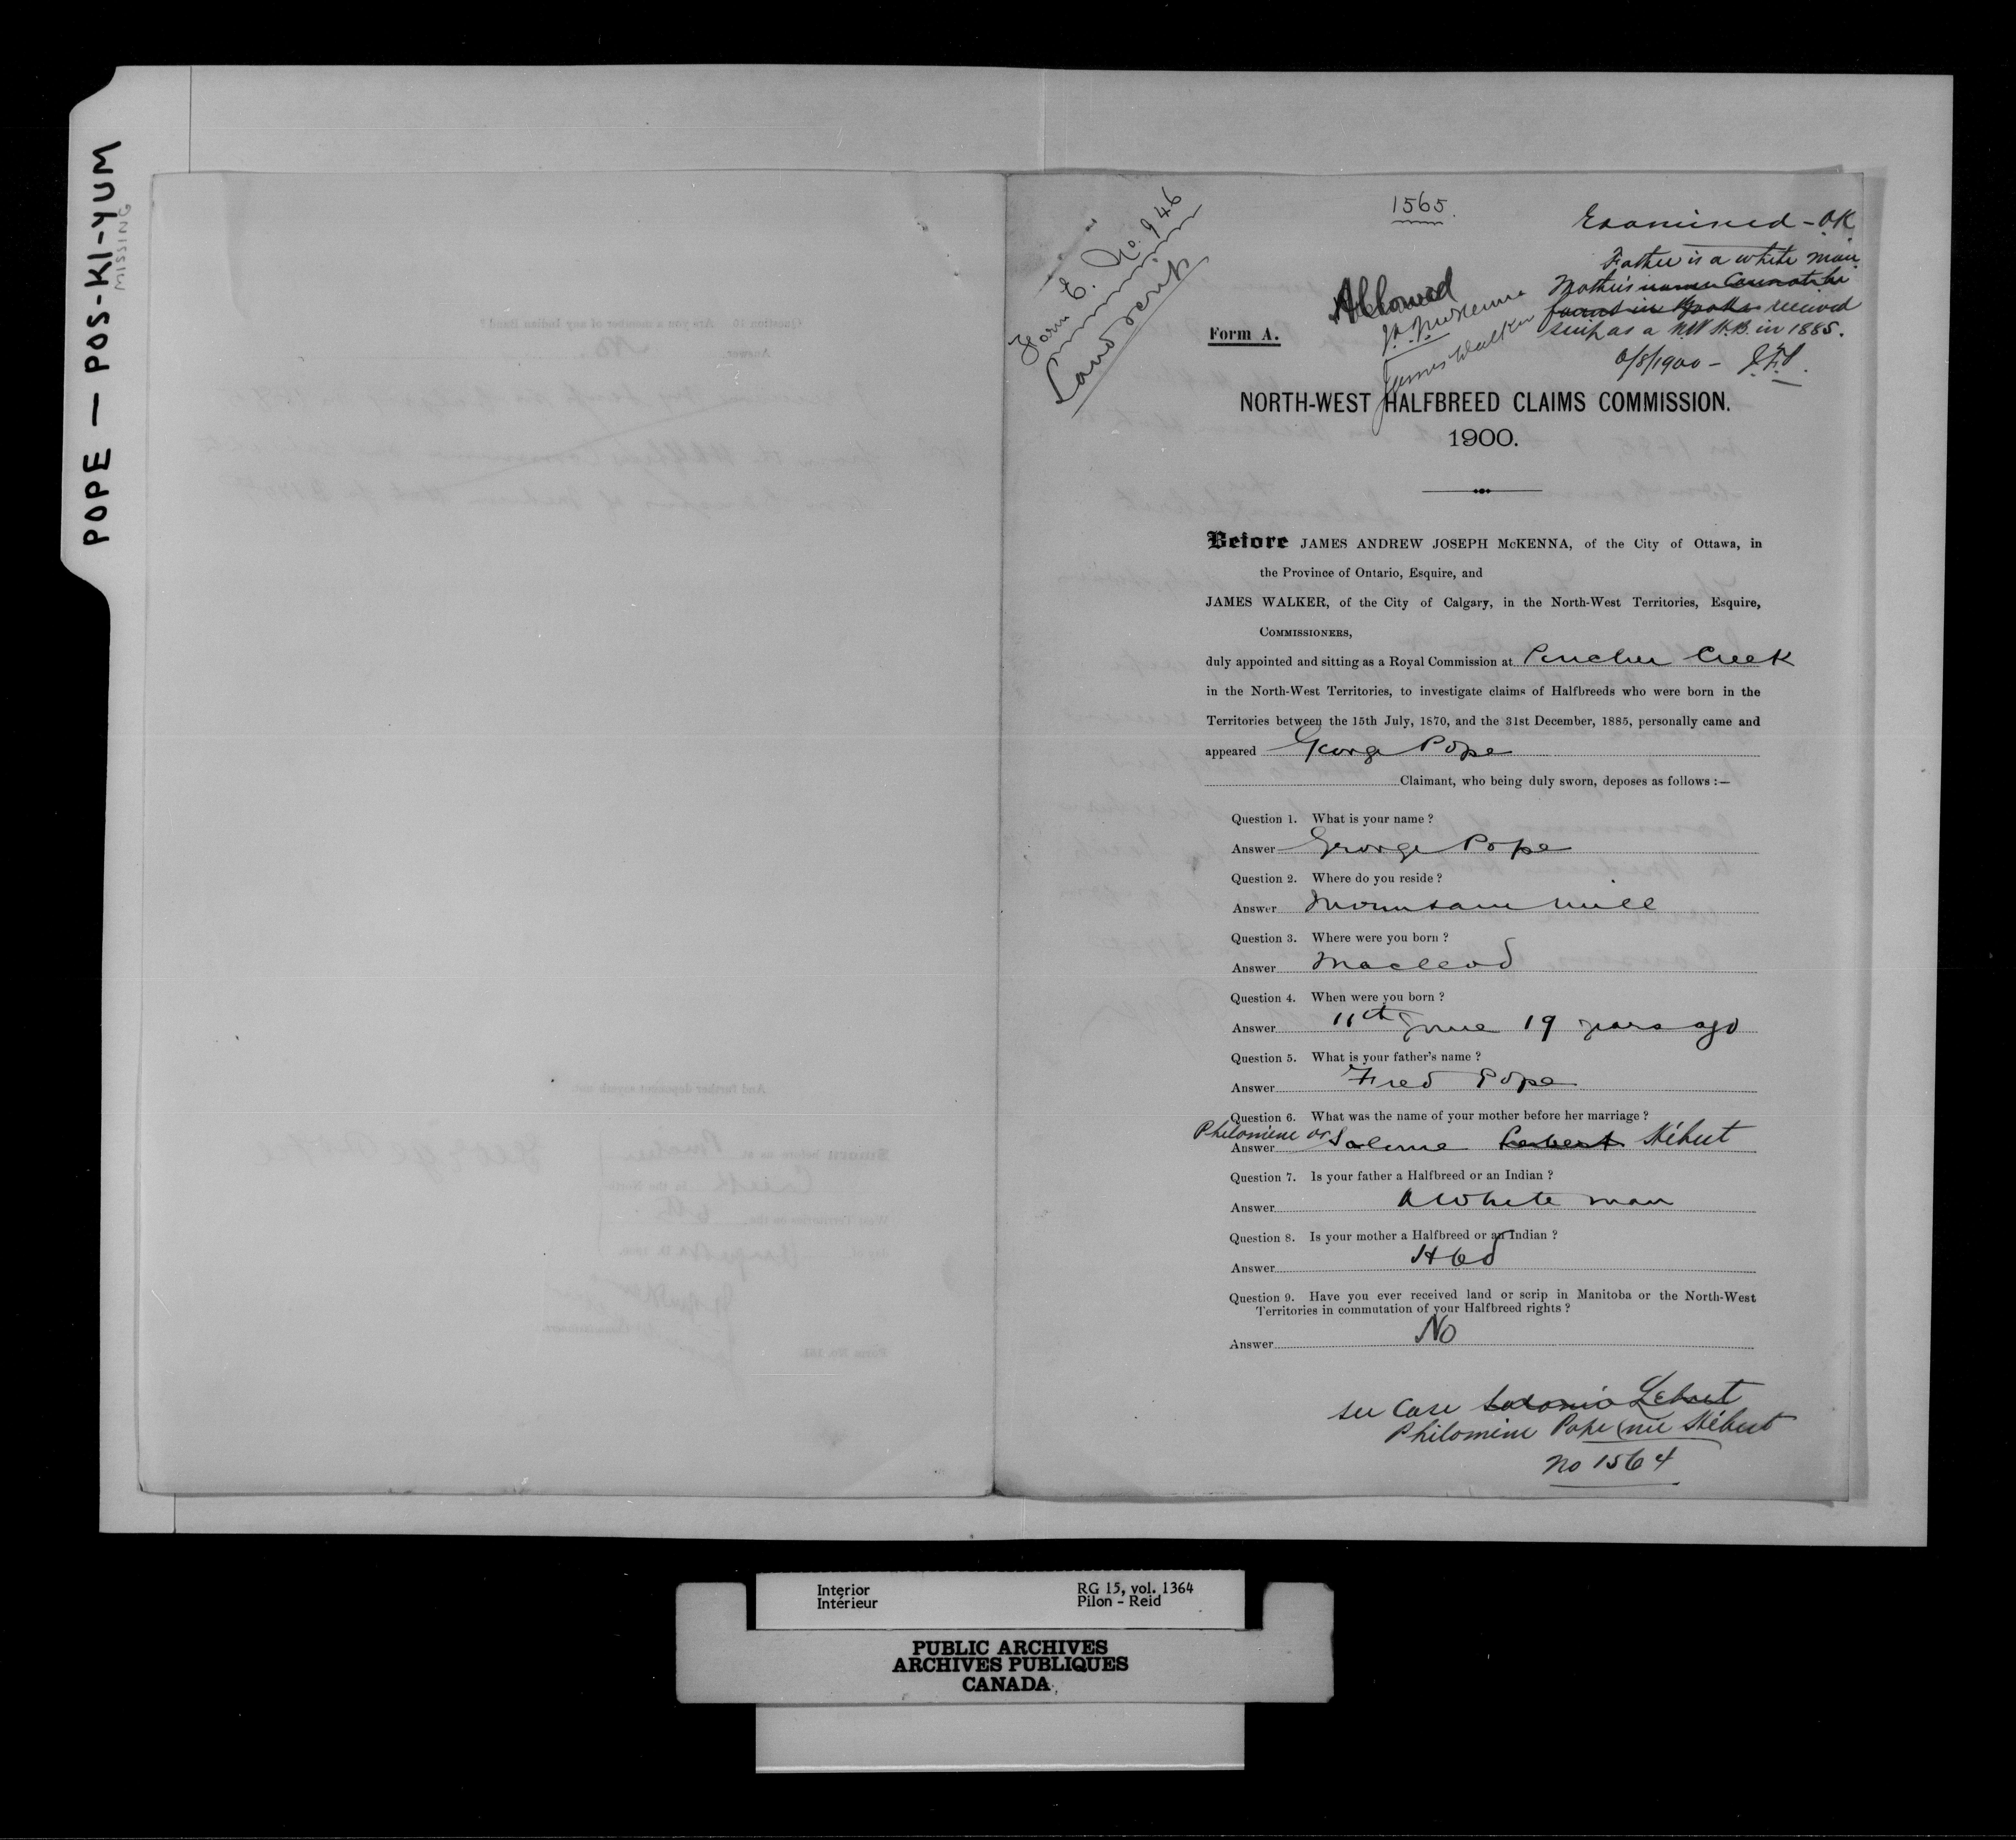 POPE — POS-KI-YUM
MISSING
Form E. No. 946
Land scrip
1565.
Examined - OK.
Father is a white man
Mother's name Cannot be
found in Books received
scrip as a NW H.B. in 1885.
6/8/1900 -
Allowed
J.A.J. McKenna
James Walker
Form A.
NORTH-WEST HALFBREED CLAIMS COMMISSION.
1900.
Before JAMES ANDREW JOSEPH McKENNA, of the City of Ottawa, in
the Province of Ontario, Esquire, and
JAMES WALKER, of the City of Calgary, in the North-West Territories, Esquire,
COMMISSIONERS,
duly appointed and sitting as a Royal Commission at Pincher Creek
in the North-West Territories, to investigate claims of Halfbreeds who were born in the
Territories between the 15th July, 1870, and the 31st December, 1885, personally came and
appeared George Pope
Claimant, who being duly sworn, deposes as follows :—
Question 1. What is your name ?
Answer George Pope
Question 2. Where do you reside ?
Answer Mountain Mill
Question 3. Where were you born ?
Answer Macleod
Question 4. When were you born ?
Answer 11th June 19 years ago
Question 5. What is your father's name ?
Answer Fred Pope
Question 6. What was the name of your mother before her marriage ?
Philomène or
Answer Salome Lebert Hébert
Question 7. Is your father a Halfbreed or an Indian ?
Answer A White man
Question 8. Is your mother a Halfbreed or an Indian ?
Answer Hbd
Question 9. Have you ever received land or scrip in Manitoba or the North-West
Territories in commutation of your Halfbreed rights ?
Answer No
see Case Lebert
Philomène Pope (née Hébert
No 1564
Interior
Intérieur
RG 15, vol. 1364
Pilon - Reid
PUBLIC ARCHIVES
ARCHIVES PUBLIQUES
CANADA